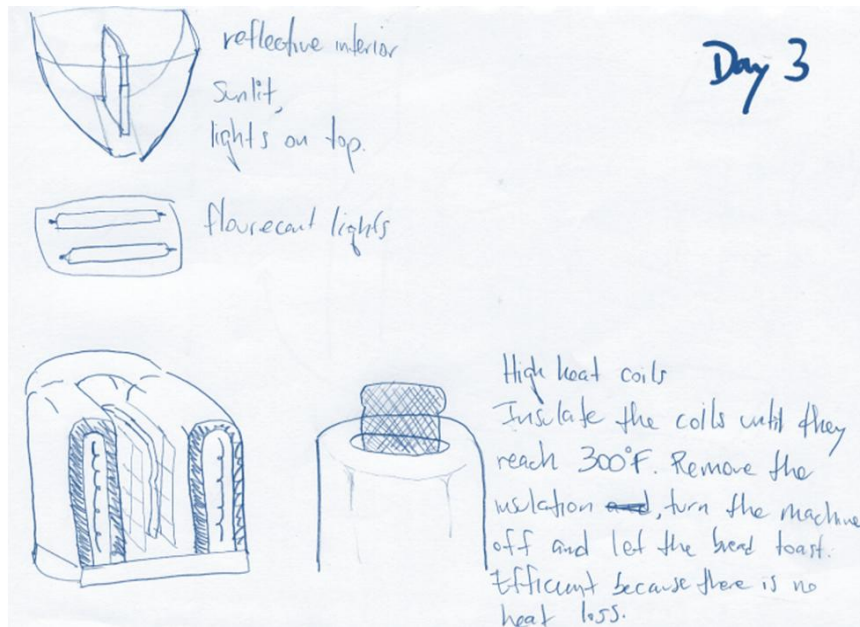 Day 3
reflective interior
Sunlit,
lights on top.
flourecant lights
High heat coils
Insulate the coils until they
reach 300°F. Remove the
insulation and, turn the machine
off and let the bread toast.
Efficient because there is no
heat loss.